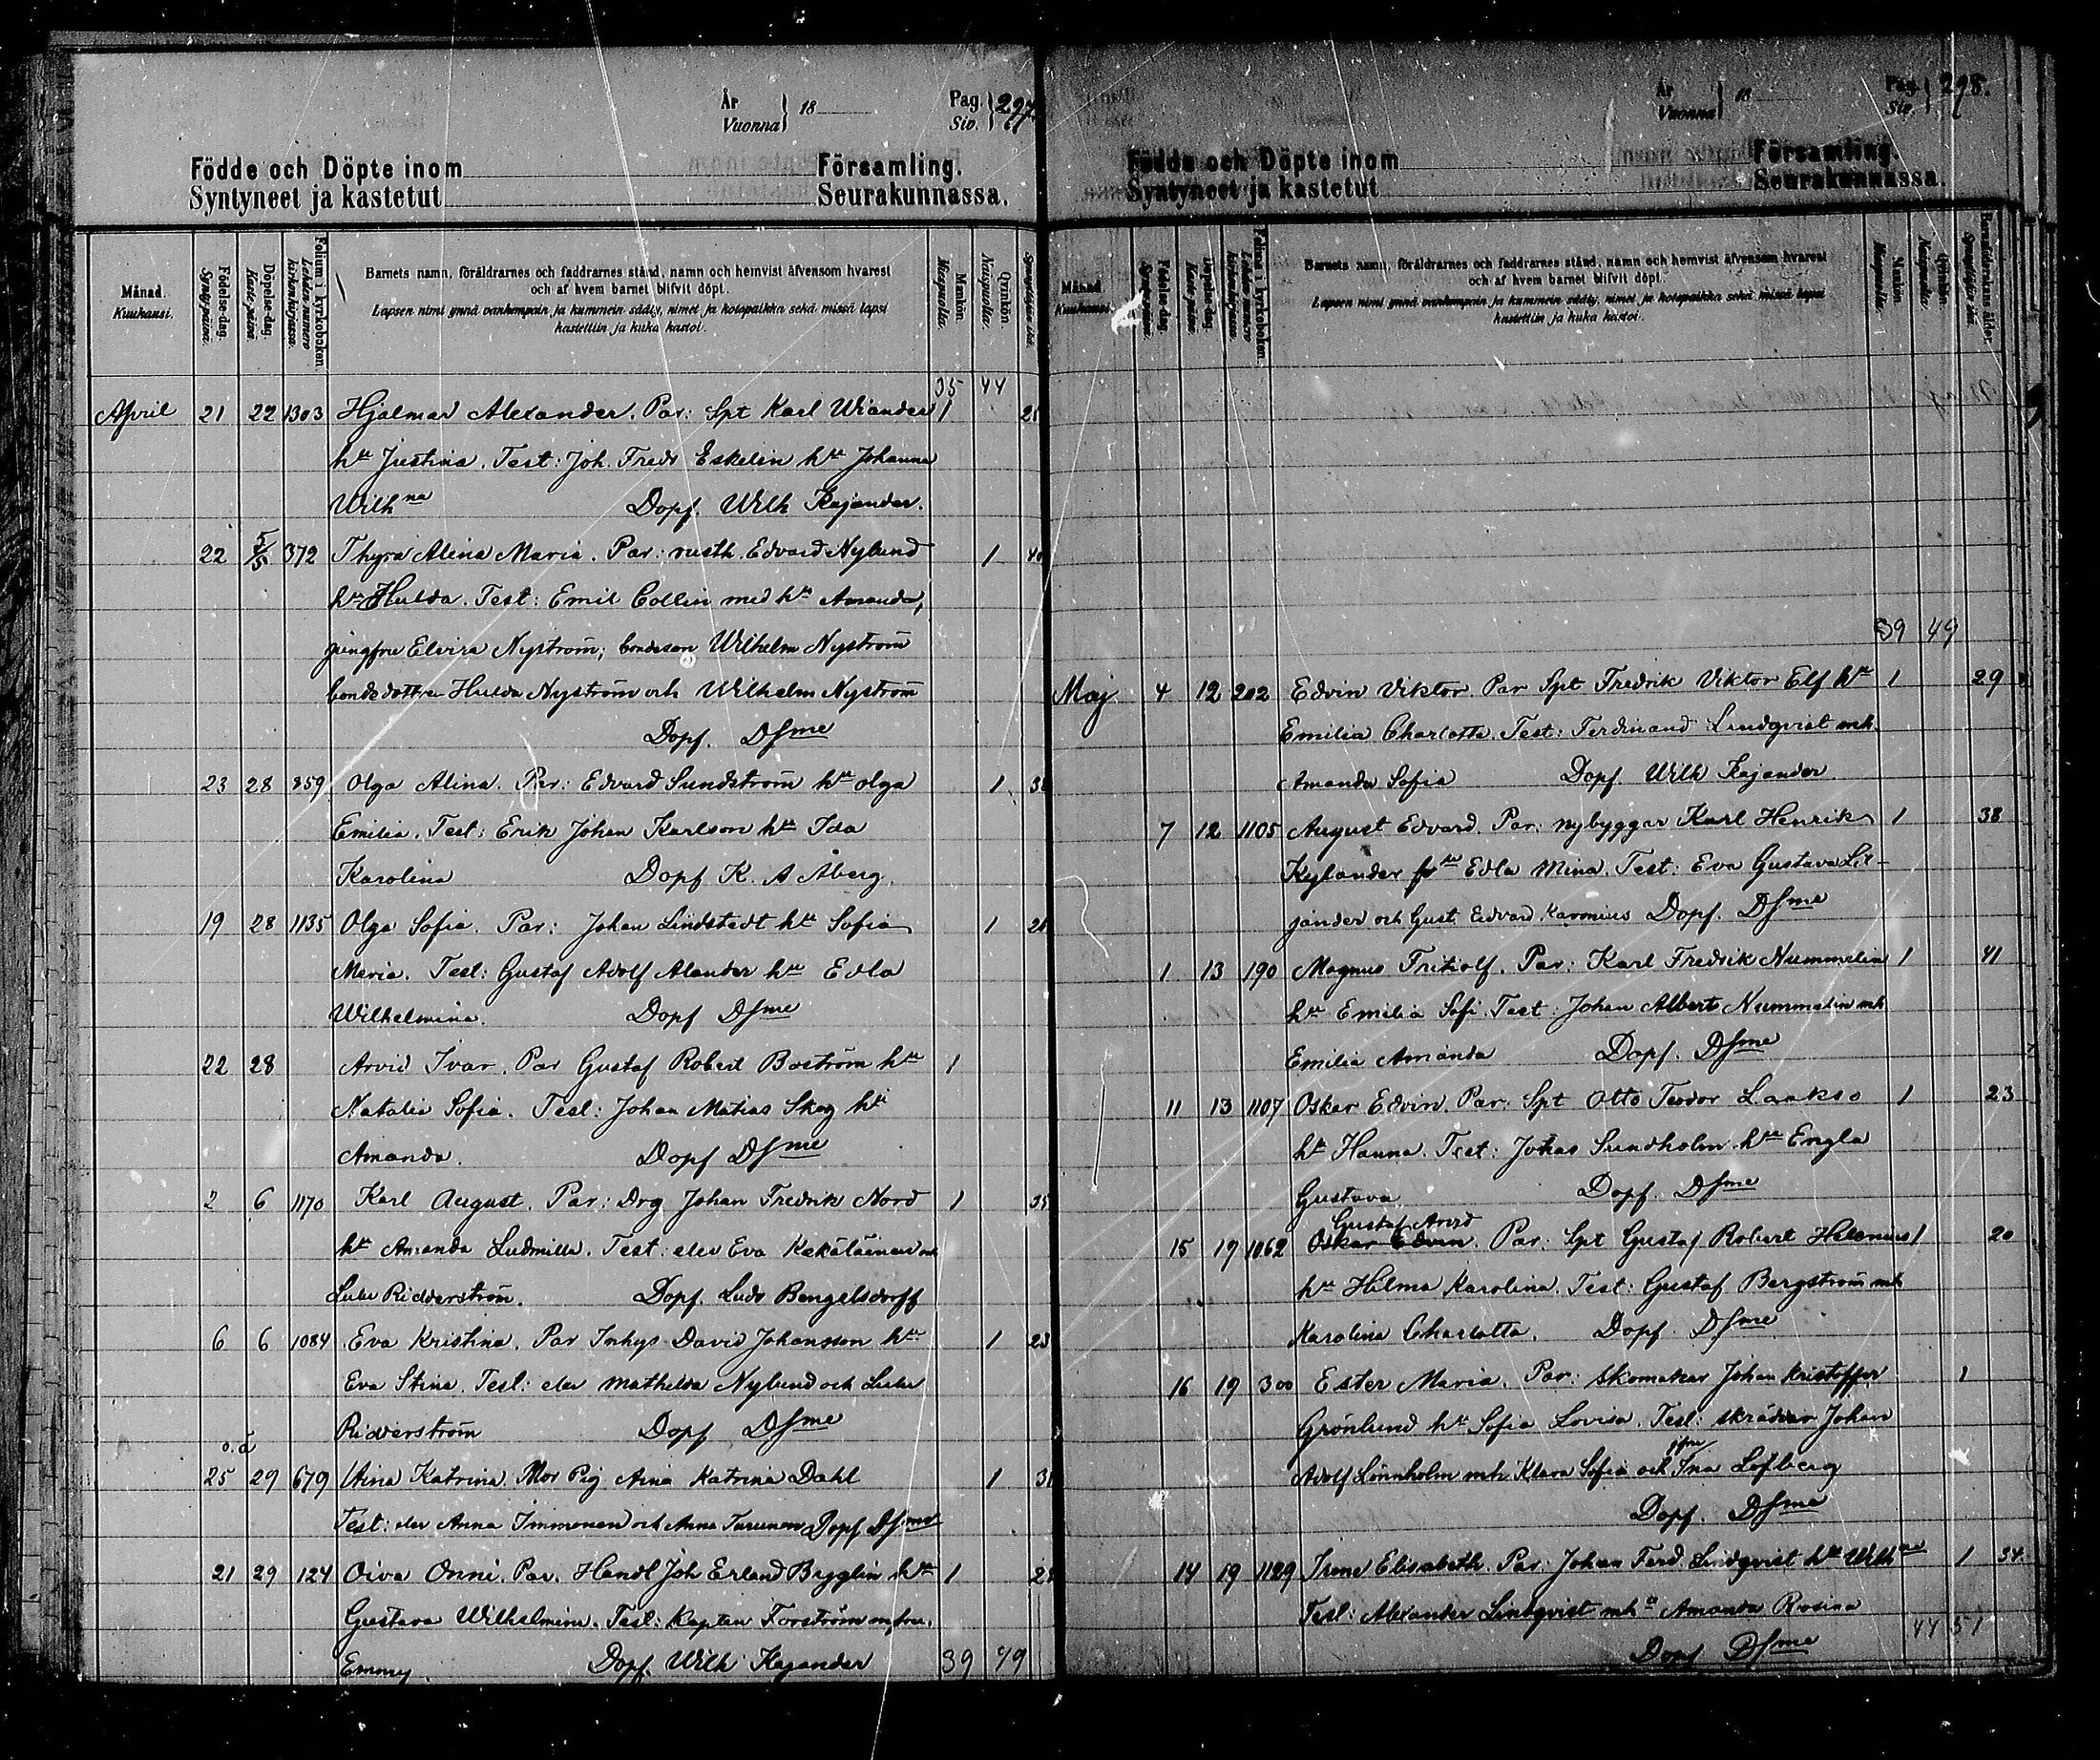 År
Vuonna } 18
Pag.
Siv. } 297.
Födde och Döpte inom Församling.
Syntyneet ja kastetut Seurakunnassa.
Månad.
Kuukausi.
Födelse-dag.
Syntympäivä.
Döpelse-dag.
Kaste-päivä.
Folium i kyrkoboken.
Lehden numero kirkonkirjassa.
Barnets namn, föräldrarnes och faddrarnes stånd, namn och hemvist äfvensom hvarest
och af hvem barnet blifvit döpt.
Lapsen nimi ynnä vanhempain ja kummein sääty, nimet ja kotopaikka sekä missä lapsi
kastettiin ja kuka kastoi.
Mankön.
Miespuolia.
Qvinkön.
Naispuolia.
35 44
April 21 22 1303 Hjalmar Alexander. Par: Spt Karl Wiander 1
hu Justina. Test: Joh. Fredr Eskelin hu Johanna
Wilhna Dopf. Wilh Kajander.
22 5/5 372 Thyra Alina Maria. Par: rusth. Edvard Nylund 1 40
hu Hulda. Test: Emil Collin med hu Amanda,
jungfru Elvira Nyström; bondeson Wilhelm Nyström
bondedottren Hulda Nyström och Wilhelm Nyström
Dopf. DSme
23 28 859 Olga Alina. Par: Edvard Sundström hu Olga 1
Emilia. Test: Erik Johan Karlson hu Ida
Karolina Dopf K. A Åberg.
19 28 1135 Olga Sofia. Par: Johan Lindstedt hu Sofia 1
Maria. Test: Gustaf Adolf Alander hu Edla
Wilhelmina. Dopf DSme
22 28 Arvid Ivar. Par Gustaf Robert Boström hu 1
Natalia Sofia. Test: Johan Matias Skog hu
Amanda. Dopf DSme
2 6 1170 Karl August. Par: Drg Johan Fredrik Nord 1 35
hu Amanda Ludmilla. Test: elev Eva Kekäläinen och
Lulu Ridderström. Dopf. Ludv Bengelsdorff
6 6 1084 Eva Kristina. Par Inhys David Johansson hu 1 23
Eva Stina. Test: elev Mathilda Nylund och Lulu
Ridderström Dopf DSme
o. ä
25 29 679 Aina Katrina. Mor Pig Aina Katrina Dahl 1 31
Test: elev Anna Immonen och Anna Turunen Dopf DSme
21 29 124 Oiva Onni. Par. Handl Joh Erland Brygglin hu 1
Gustava Wilhelmina. Test: Kapten Forström m fru.
Emmy. Dopf. Wilh Kajander 39 49
År
Vuonna } 18
Pag.
Siv. } 298.
Födde och Döpte inom Församling.
Syntyneet ja kastetut Seurakunnassa.
Månad.
Kuukausi.
Födelse-dag.
Döpelse-dag.
Kaste-päivä.
Folium i kyrkoboken.
Lehden numero kirkonkirjassa.
Barnets namn, föräldrarnes och faddrarnes stånd, namn och hemvist äfvensom hvarest
och af hvem barnet blifvit döpt.
Lapsen nimi ynnä vanhempain ja kummein sääty, nimet ja kotopaikka sekä missä lapsi
kastettiin ja kuka kastoi.
Mankön.
Miespuolia.
Qvinkön.
Naispuolia.
Barnföderskans ålder.
Synnyttäjän ikä.
39 49
Maj 4 12 202 Edvin Viktor Par Spt Fredrik Viktor Elf hu 1 29
Emilia Charlotta. Test: Ferdinand Lindqvist mh.
Amanda Sofia Dopf Wilh Kajander
7 12 1105 August Edvard. Par: nybyggar Karl Henrik 1 38
Kylander hu Edla Mina. Test: Eva Gustava Lil-
jander och Gust Edvard Karonius Dopf. DSme
1 13 190 Magnus Fritiolf. Par: Karl Fredrik Nummelin 1 41
hu Emilia Sofi. Test: Johan Albert Nummelin mh
Emilia Amanda Dopf. DSme
11 13 1107 Oskar Edvin. Par: Spt Otto Teodor Laakso 1 23
hu Hanna. Test: Johas Sundholm hu Engla
Gustava Dopf. DSme
Gustaf Arvid
15 19 1062 Oskar Edvin. Par: Spt Gustaf Robert Helenius 1 20
hu Hilma Karolina. Test: Gustaf Bergström mh
Karolina Charlotta. Dopf. DSme
16 19 300 Ester Maria. Par: Skomakar Johan Kristoffer 1
Grönlund hu Sofia Lovisa. Test: skräddar Johan
Adolf Lönnholm mh Klara Sofia och jfru Ina Löfberg
Dopf. DSme
14 19 1129 Irene Elisabeth. Par: Johan Ferd. Lindqvist hu Wilhna 1 34
Test: Alexander Lindqvist mhu Amanda Rosina
44 51
Dopf DSme